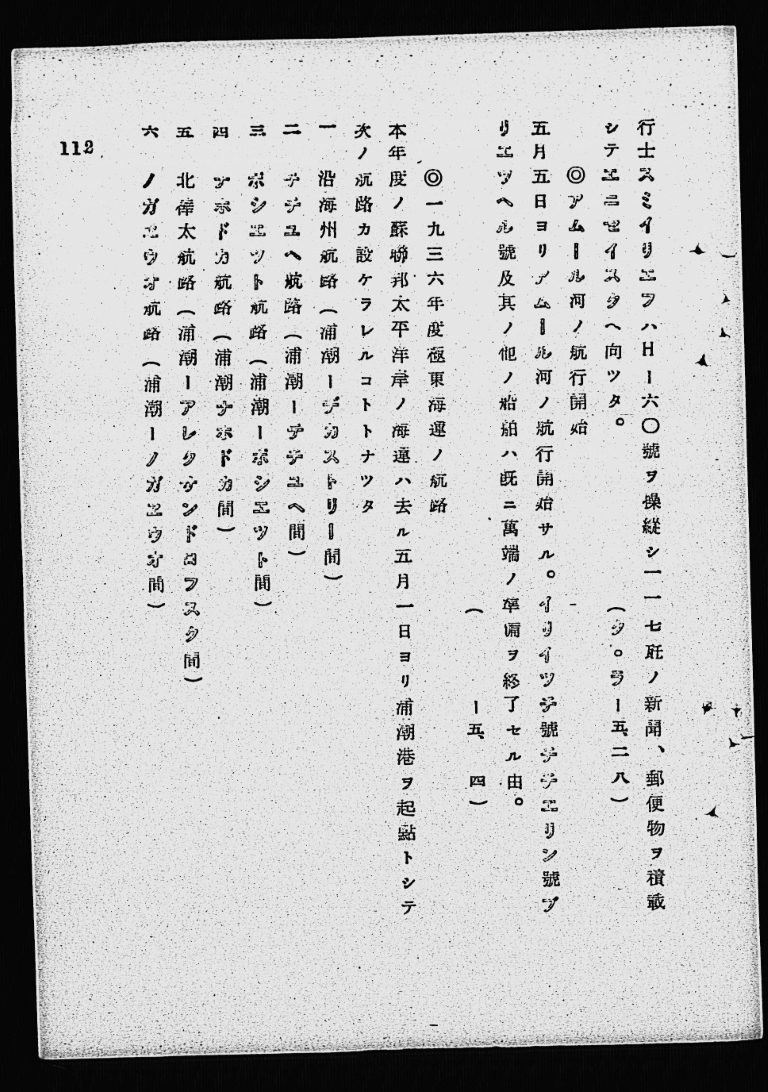 行士スミイリエフハH一六〇號ヲ操縦シ一一七瓩ノ新聞、郵便物ヲ積載
シテエニセイスクヘ向ツタ。 (タ。ラー五、二八)
◎アムール河ノ航行開始
五月五日ヨリアムール河ノ航行開始サル。イリイツチ號チチエリン號プ
リエツヘル號及其ノ他ノ船舶ハ既ニ萬端ノ準備ヲ終了セル由。
( ー五、四)
◎一九三六年度極東海運ノ航路
本年度ノ蘇聯邦太平洋岸ノ海運ハ去ル五月一日ヨリ浦潮港ヲ起點トシテ
次ノ航路カ設ケラレルコトトナツタ
一 沿海州航路(浦潮ーデカストリー間)
二 テチユヘ航路(浦潮ーテチユヘ間)
三 ポシエツト航路(浦潮ーポシエツト間)
四 ナホドカ航路(浦潮ナホドカ間)
五 北樺太航路(浦潮ーアレクサンドロフスク間)
六 ノガエウオ航路(浦潮ーノガエウオ間)
112